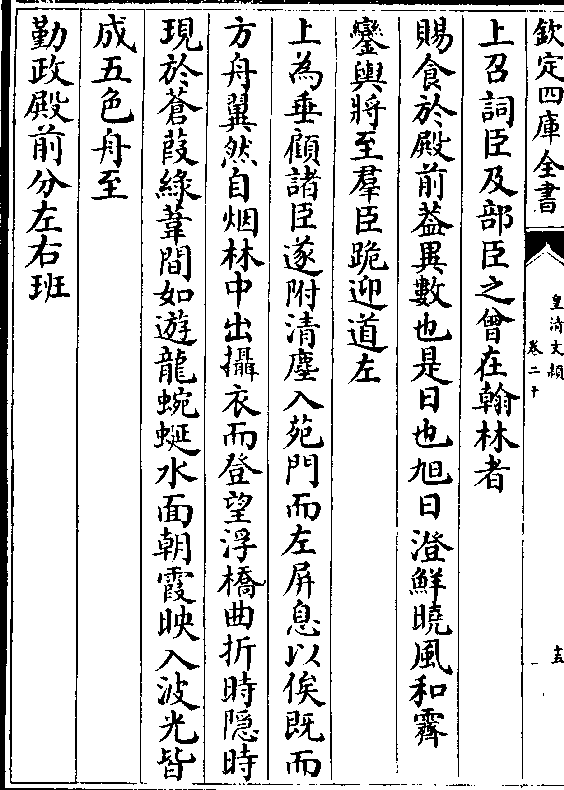 欽定四庫全書
皇清文穎
卷二十
十五
上召詞臣及部臣之曾在翰林者
賜食於殿前葢異數也是日也旭日澄鮮曉風和霽
鑾輿將至羣臣跪迎道左
上為垂顧諸臣遂附清塵入苑門而左屏息以俟既而
方舟翼然自烟林中出攝衣而登望浮橋曲折時隠時
現於蒼葭綠葦間如遊龍蜿蜒水面朝霞映入波光皆
成五色舟至
勤政殿前分左右班